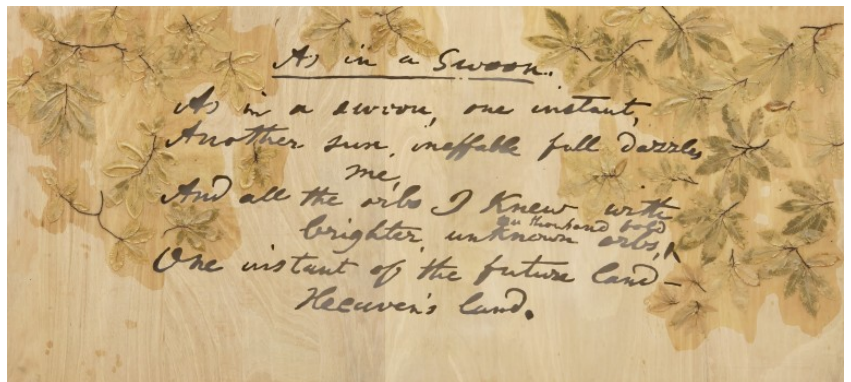 As in a Swoon.
As in a swoon, one instant,
Another sun, ineffable full dazzles
me,
And all the orbs I Knew with
thousand fold
brighter, unknown orbs,
One instant of the future land —
Heaven's land.